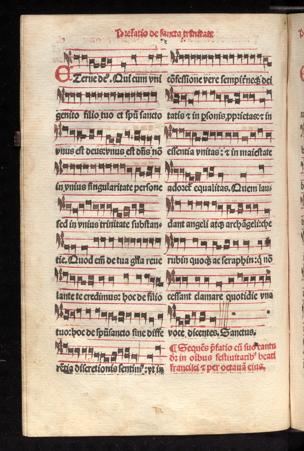 Prefatio de sancta trinitate
Eterne deꝰ. Qui cum vni
genito filio tuo et spũ sancto
vnus est deus: vnus est dñs nõ
in vnius singularitate persone
sed in vnius trinitate substan⸗
tie. Quod em̃ de tua gl̃ia reue
lante te credimus: hoc de filio
tuo: hoc de spũsancto sine diffe
rẽtia discretionis sentimꝰ: vt in
cõfessione vere sempiterneqꝫ dei
tatis ⁊ in psonis, pprietas: ⁊ in
essentia vnitas: ⁊ in maiestate
adoret̃ equalitas. Quem lau⸗
dant angeli atqꝫ archãgeli: che
rubin quoqꝫ ac seraphin: q̃ nõ
cessant clamare quotidie vna
voce dicentes. Sanctus.
¶ Sequẽs p̃fatio cũ suo cantu
dr̃: in oĩbus festiuitatibꝰ beati
francisci ⁊ per octauã eius.